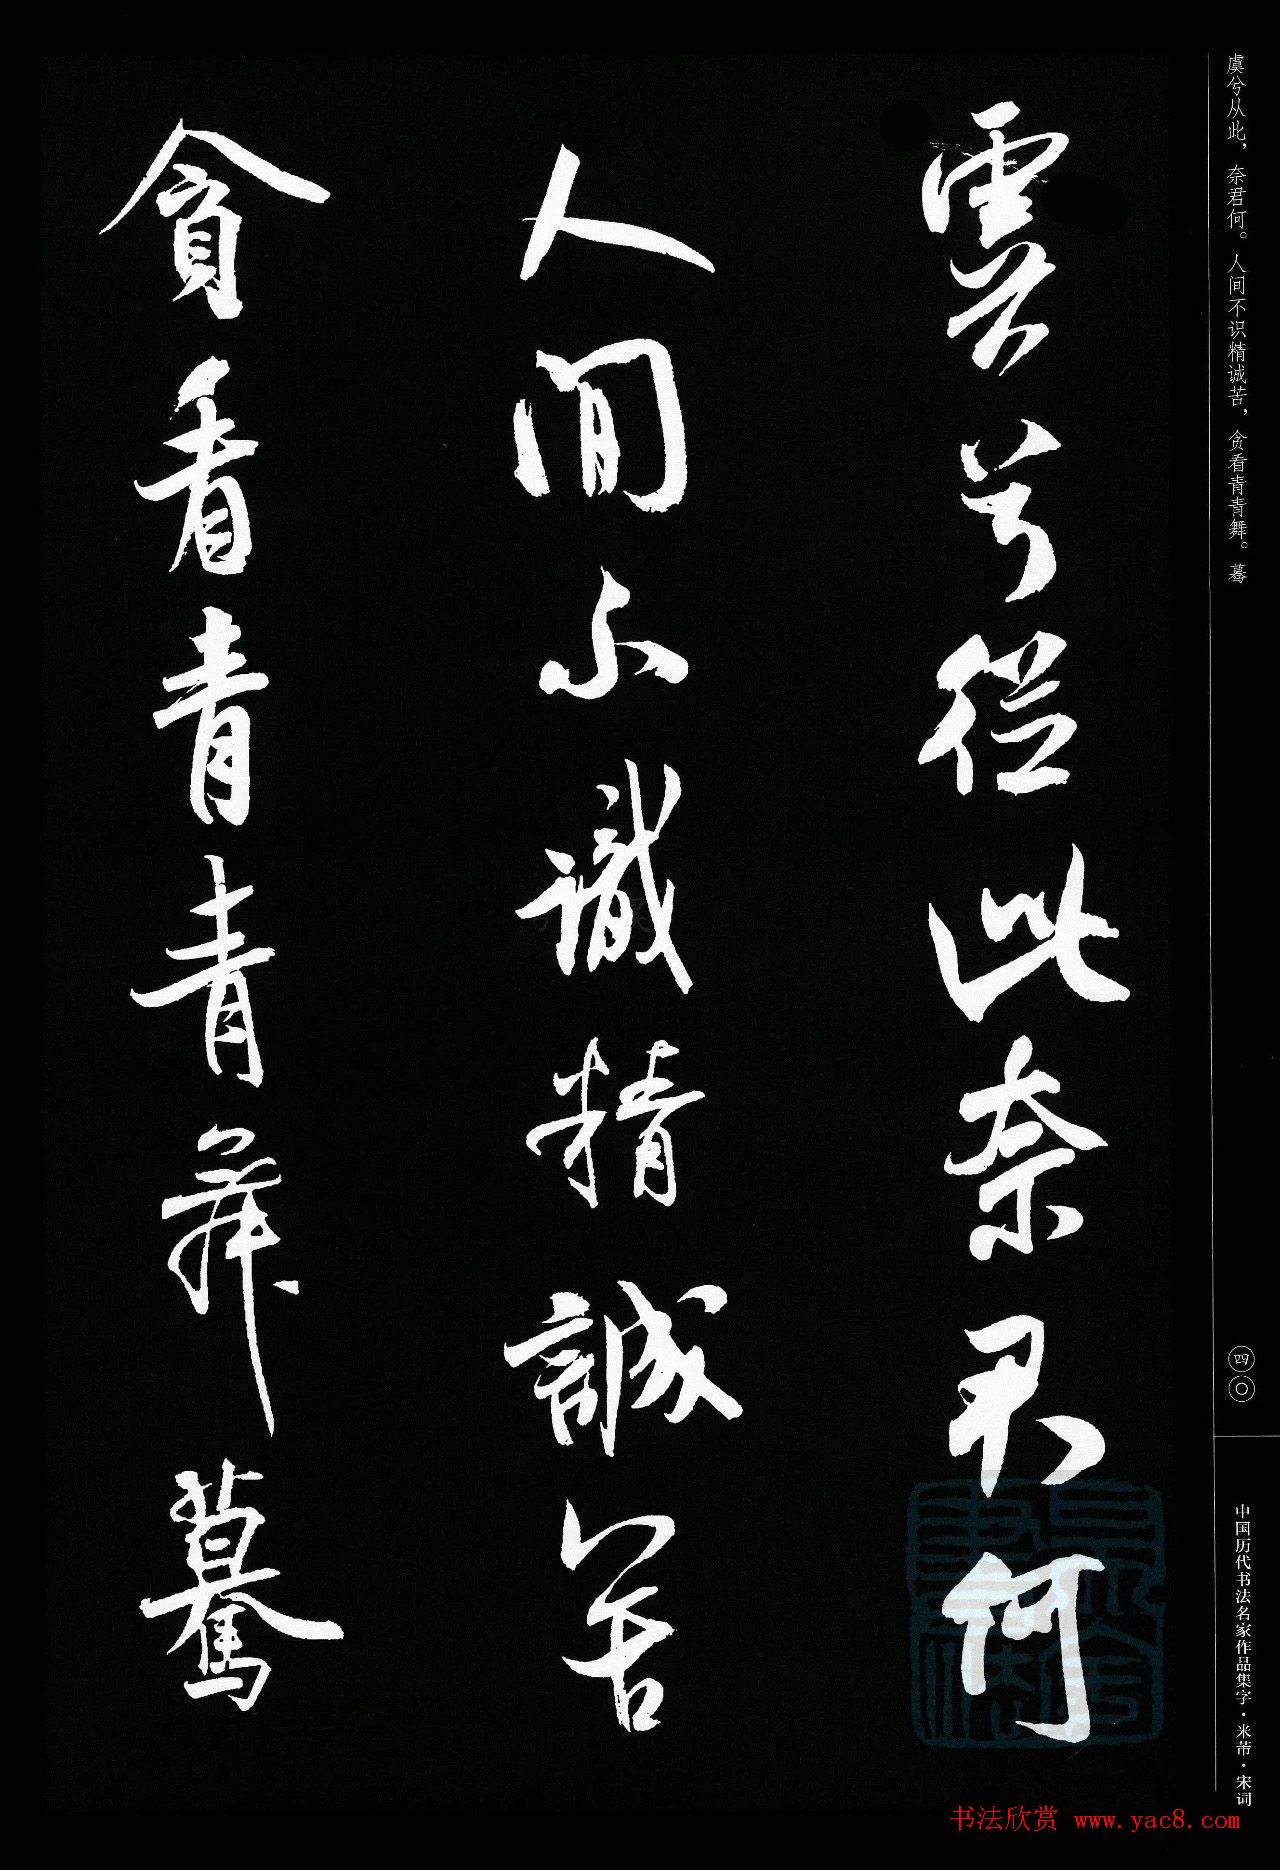 虞兮从此，奈君何。人间不识精诚苦，贪看青青舞。蓦
虞兮從此奈君何
人間不識精誠苦
貪看青青舞驀
四〇
中国历代书法名家作品集字·米芾·宋词
书法欣赏 www.yac8.com